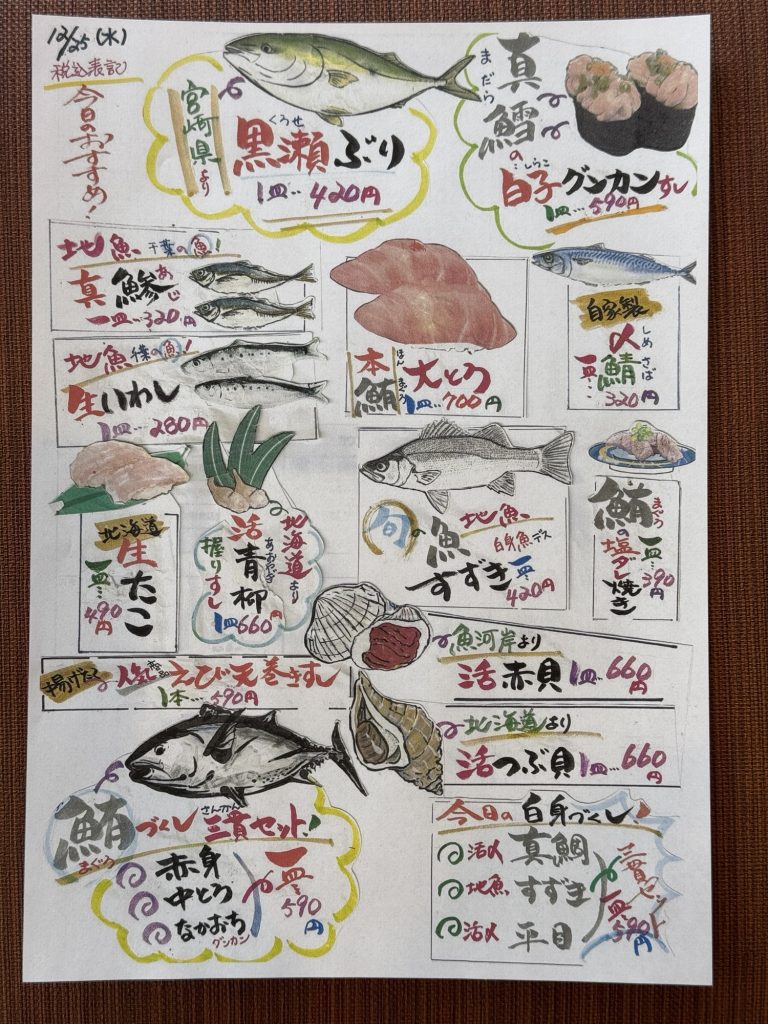 12/25(水)
税込表記
今日のおすすめ!
宮崎県より
くろせ
黒瀬ぶり
1皿…420円
まだら
真鱈の
しらこ
白子グンカンすし
1皿…590円
地魚 千葉の魚!
真鯵
あじ
一皿…320円
地魚 千葉の魚!
生いわし
1皿…280円
本鮪
ほんまぐろ
大とろ
1皿…700円
自家製
〆鯖
しめさば
一皿…320円
北海道
生たこ
一皿…490円
北海道より
活青柳
あおやぎ
握りすし
1皿660円
旬の魚
地魚
白身魚デス
すずき
一皿…420円
鮪の塩ダレ焼き
まぐろ
一皿…390円
魚河岸より
活赤貝 1皿…660円
揚げたて
人気
えび天巻きすし
1本…590円
北海道より
活つぶ貝 1皿…660円
鮪づくし
まぐろ
さんかん
三貫セット!
赤身
中とろ
なかおち
グンカン
一皿…590円
今日の白身づくし!
活〆 真鯛
地魚 すずき
活〆 平目
三貫セット
一皿…590円